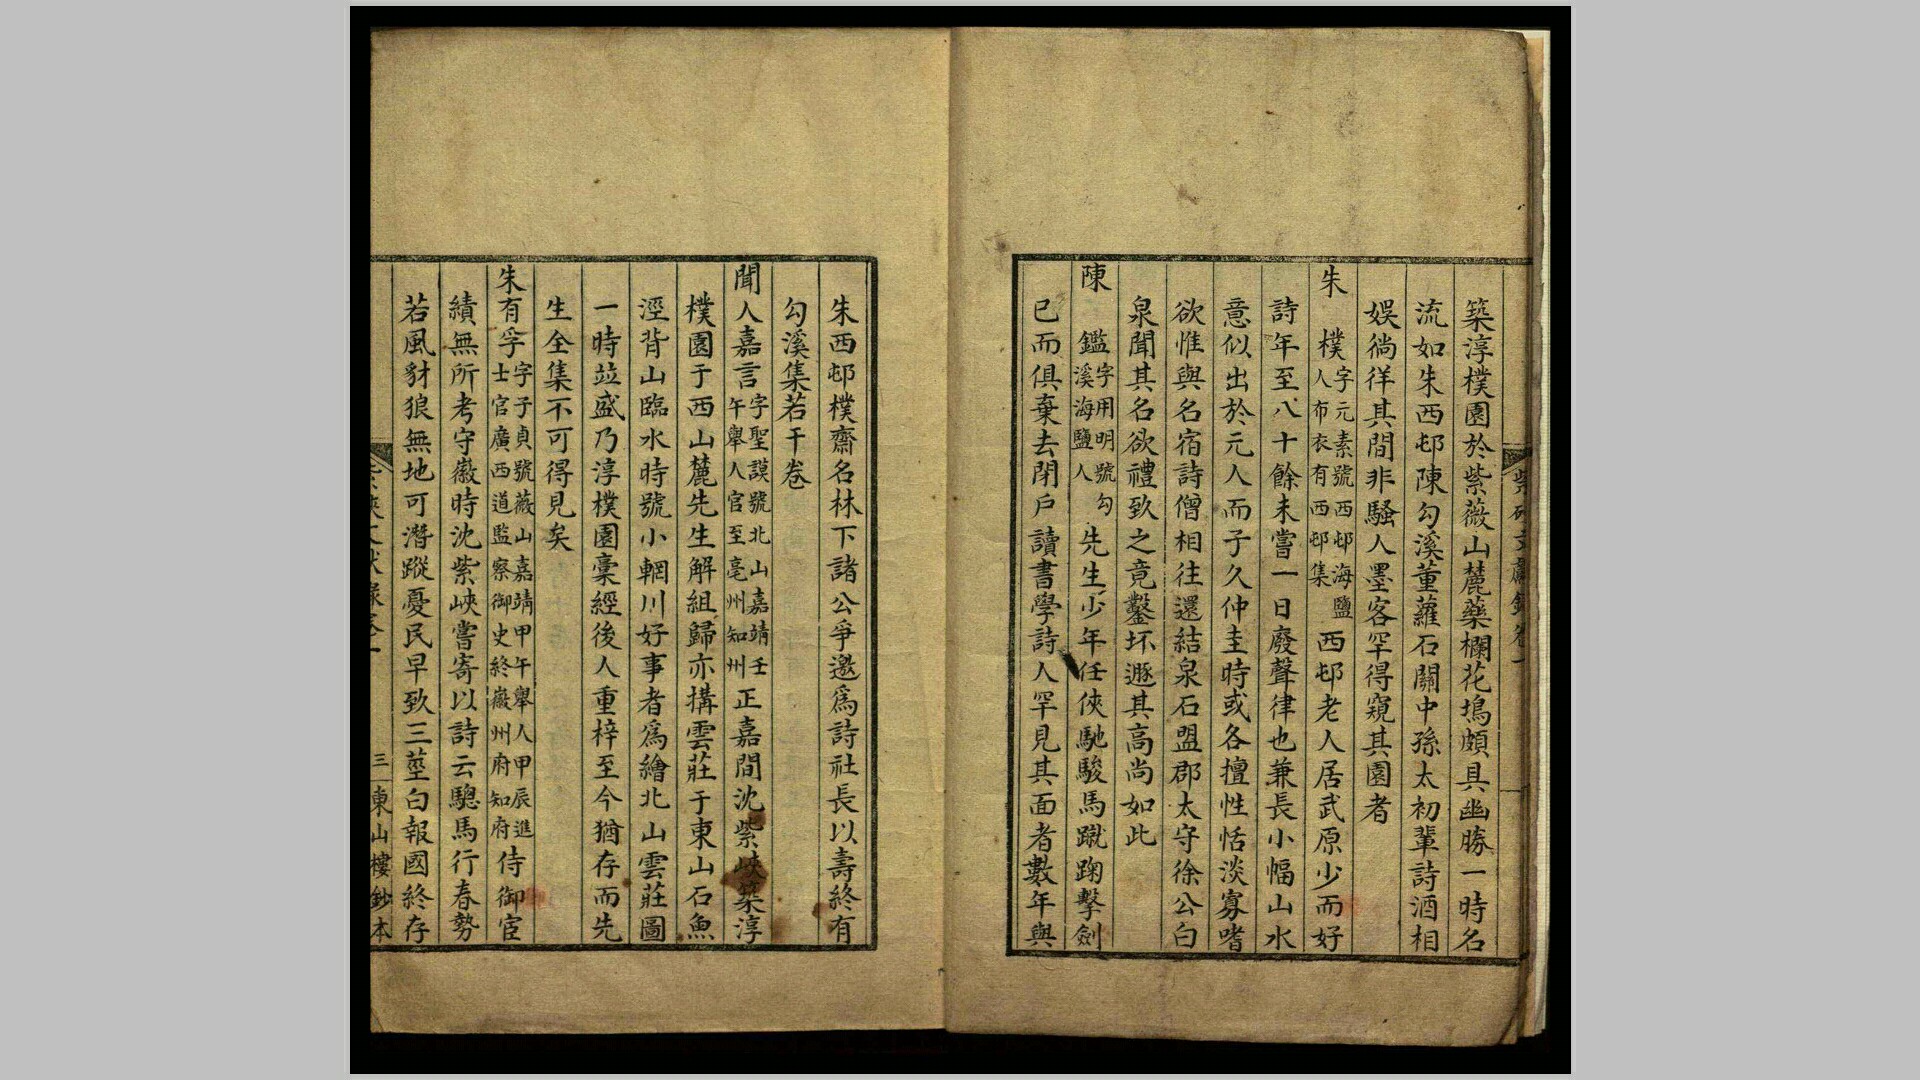 紫硤文獻錄卷一
築淳樸園於紫薇山麓藥欄花塢頗具幽勝一時名
流如朱西邨陳勾溪董蘿石關中孫太初輩詩酒相
娛徜徉其間非騷人墨客罕得窺其園者
朱樸字元素號西邨海鹽人布衣有西邨集西邨老人居武原少而好
詩年至八十餘未嘗一日廢聲律也兼長小幅山水
意似出於元人而子久仲圭時或各擅性恬淡寡嗜
欲惟與名宿詩僧相往還結泉石盟郡太守徐公白
泉聞其名欲禮致之竟鑿坏遯其高尚如此
陳鑑字用明號勾溪海鹽人先生少年任俠馳駿馬蹴踘擊劍
已而俱棄去閉戶讀書學詩人罕見其面者數年與
朱西邨樸齋名林下諸公爭邀爲詩社長以壽終有
勾溪集若干卷
聞人嘉言字聖謨號北山嘉靖壬午舉人官至亳州知州正嘉間沈紫峽築淳
樸園于西山麓先生解組歸亦構雲莊于東山石魚
涇背山臨水時號小輞川好事者爲繪北山雲莊圖
一時竝盛乃淳樸園稾經後人重梓至今猶存而先
生全集不可得見矣
朱有孚字子貞號薇山嘉靖甲午舉人甲辰進士官廣西道監察御史終徽州府知府侍御宦
績無所考守徽時沈紫峽嘗寄以詩云驄馬行春勢
若風豺狼無地可潛蹤憂民早致三莖白報國終存
三 東山樓鈔本